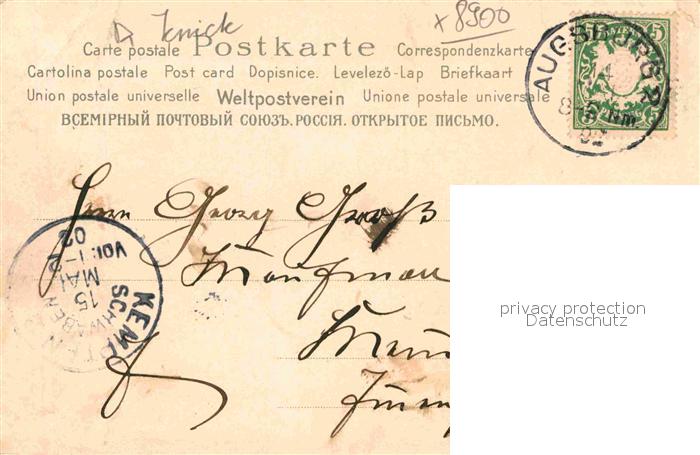 Knick
x 8900
Carte postale Postkarte Correspondenzkarte
Cartolina postale Post card Dopisnice. Levelező-Lap Briefkaart
Union postale universelle Weltpostverein Unione postale universale
ВСЕМІРНЫЙ ПОЧТОВЫЙ СОЮЗЪ. РОССІЯ. ОТКРЫТОЕ ПИСЬМО.
AUGSBURG 2
Nm.
02
5 5
Herrn Georg Groß
Kaufmann
KEMPTEN
SCHWABEN
15
MAI
Vor.
02
privacy protection
Datenschutz